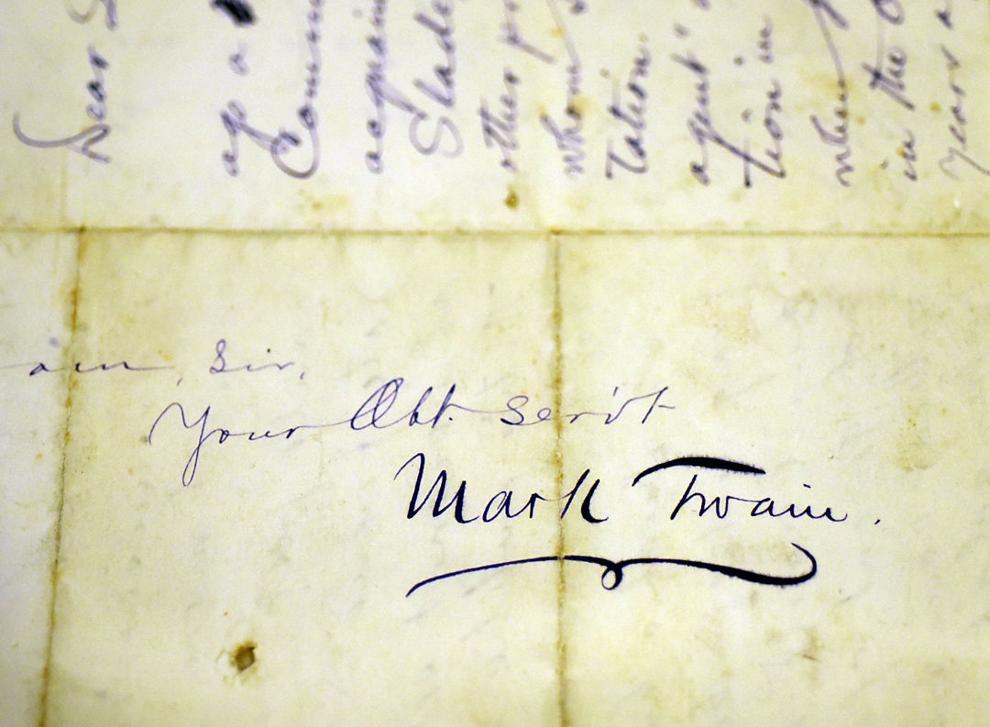 Dear
of a
Com
acquain
Slade
other
whom
tation.
agent"
tion in
when
in the
years a
am, Sir,
Your Obt Serv't
Mark Twain.